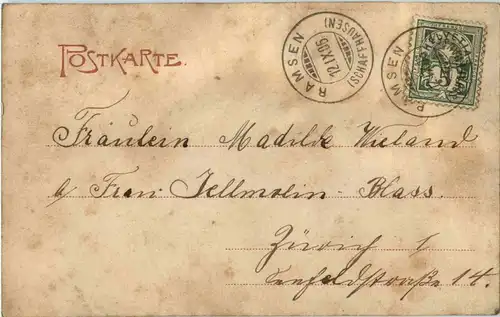 POSTKARTE.
RAMSEN
(SCHAFFHAUSEN)
12.IX.05
RAMSEN
Fräulein Madilde Wieland
p/ Frau Tellmolin-Blass.
Zürich 1
Seefeldstraße 14.